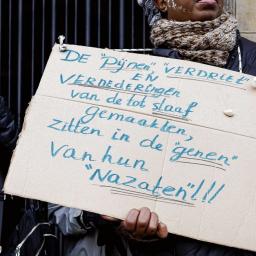 DE "Pijnen", "VERDRIET"
EN
VERNEDERINGEN
van de tot slaaf
gemaakten,
zitten in de "genen"
van hun
"Nazaten"!!!